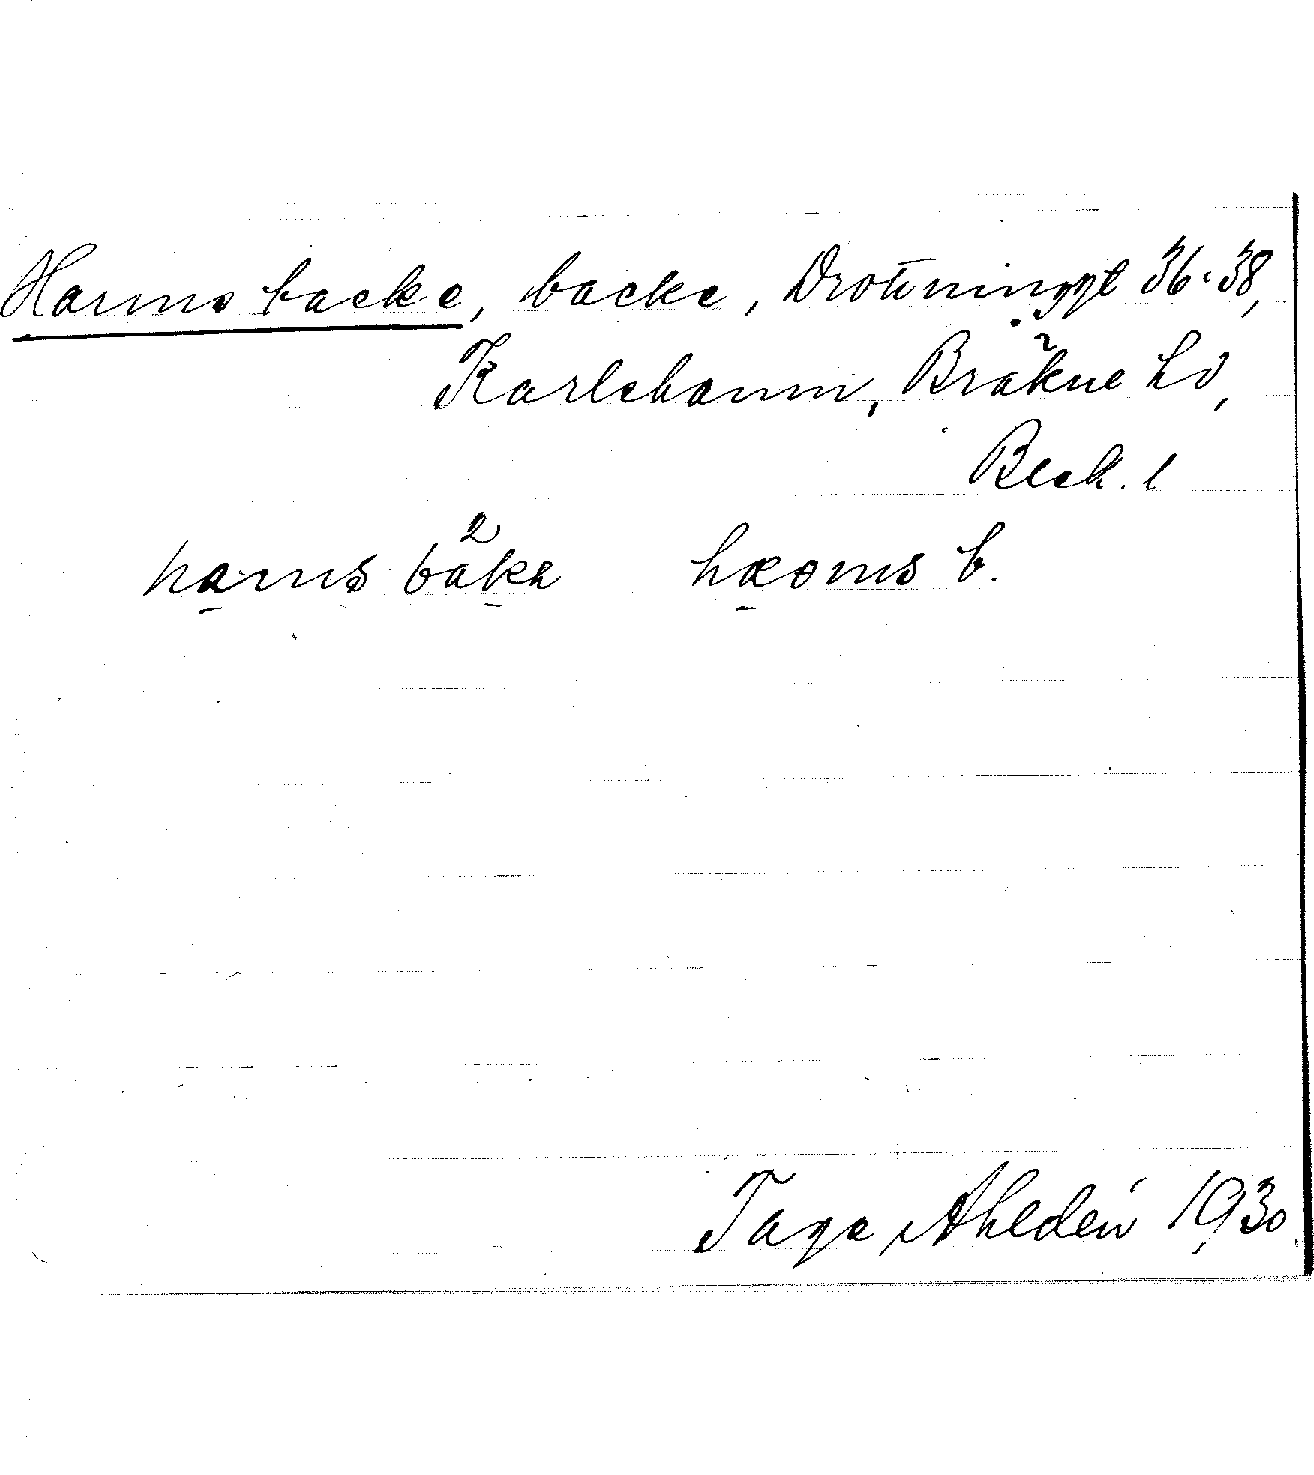 Harms backe, backe, Drottninggt 36-38,
Karlshamn, Bräkne hd,
Blek. l
harms bakə hæoms b.
Tage Ahldén 1930